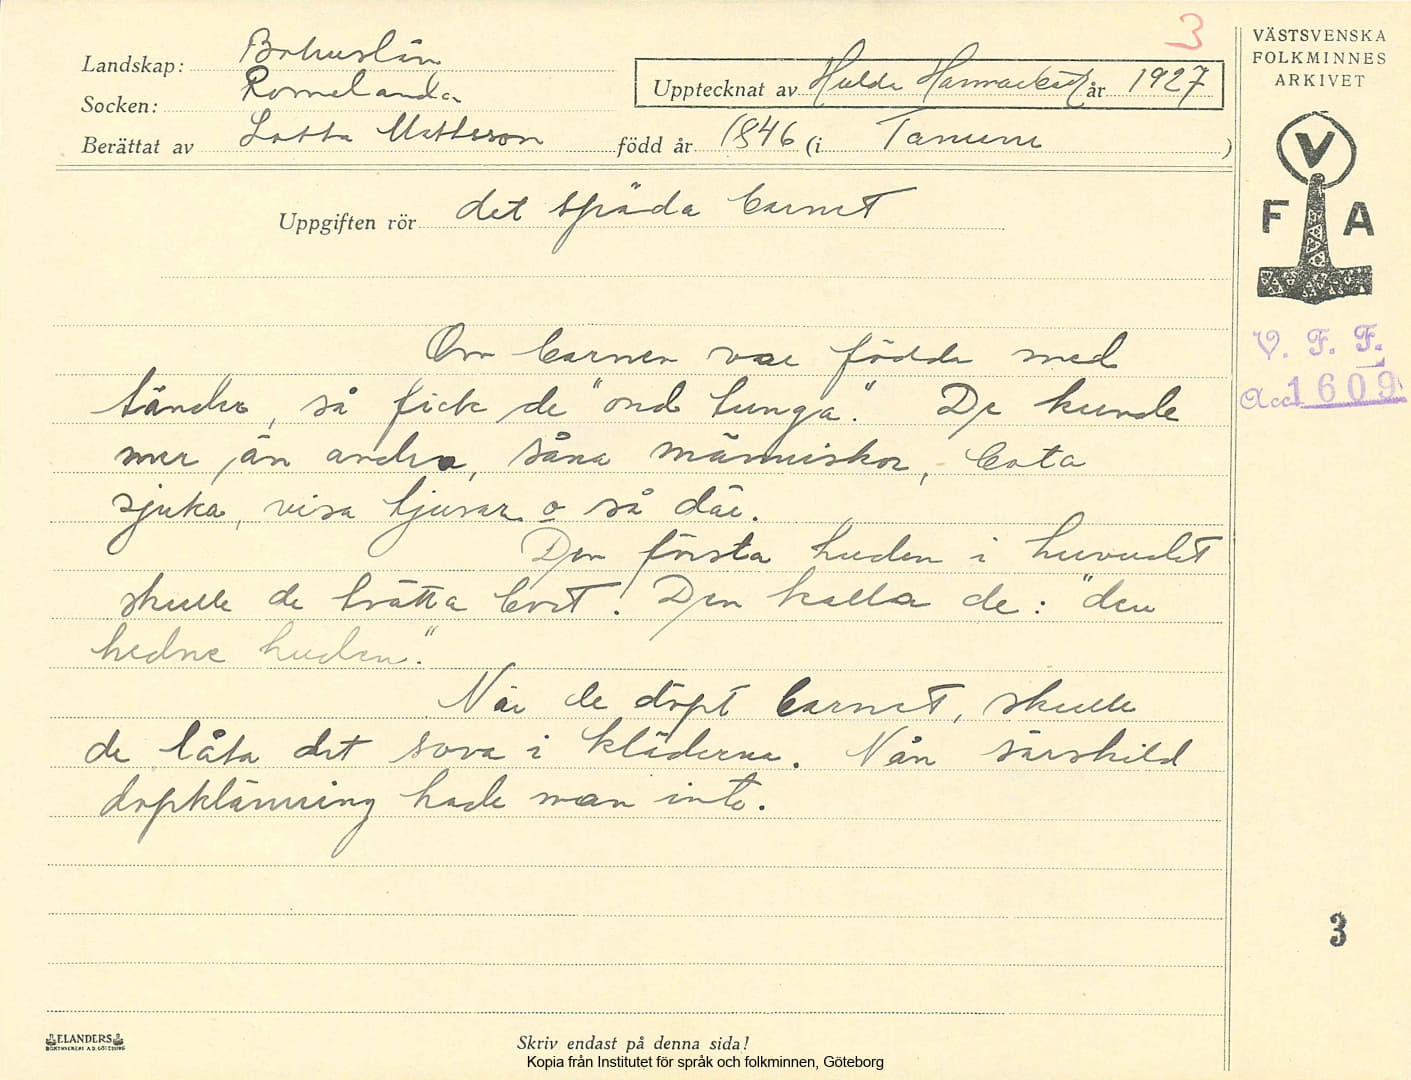 3
VÄSTSVENSKA
FOLKMINNES
ARKIVET
Landskap: Bohuslän
Socken: Romelanda
Upptecknat av Hulda Hammarbäck år 1927
Berättat av Lotta Mattsson född år 1846 (i Tanum )
V
F A
Uppgiften rör det späda barnet
V. F. F.
Acc. 1609
Om barnen var födda med
tänder, så fick de "ond tunga". De kunde
mer än andra, såna människor, bota
sjuka, visa tjuvar o så där.
Den första huden i huvudet
skulle de tvätta bort! Den kalla de: "den
hedne huden."
När de döpt barnet, skulle
de låta det sova i kläderna. Nån särskild
dopklänning hade man inte.
3
ELANDERS
BOKTRYCKERI A.B. GÖTEBORG
Skriv endast på denna sida!
Kopia från Institutet för språk och folkminnen, Göteborg